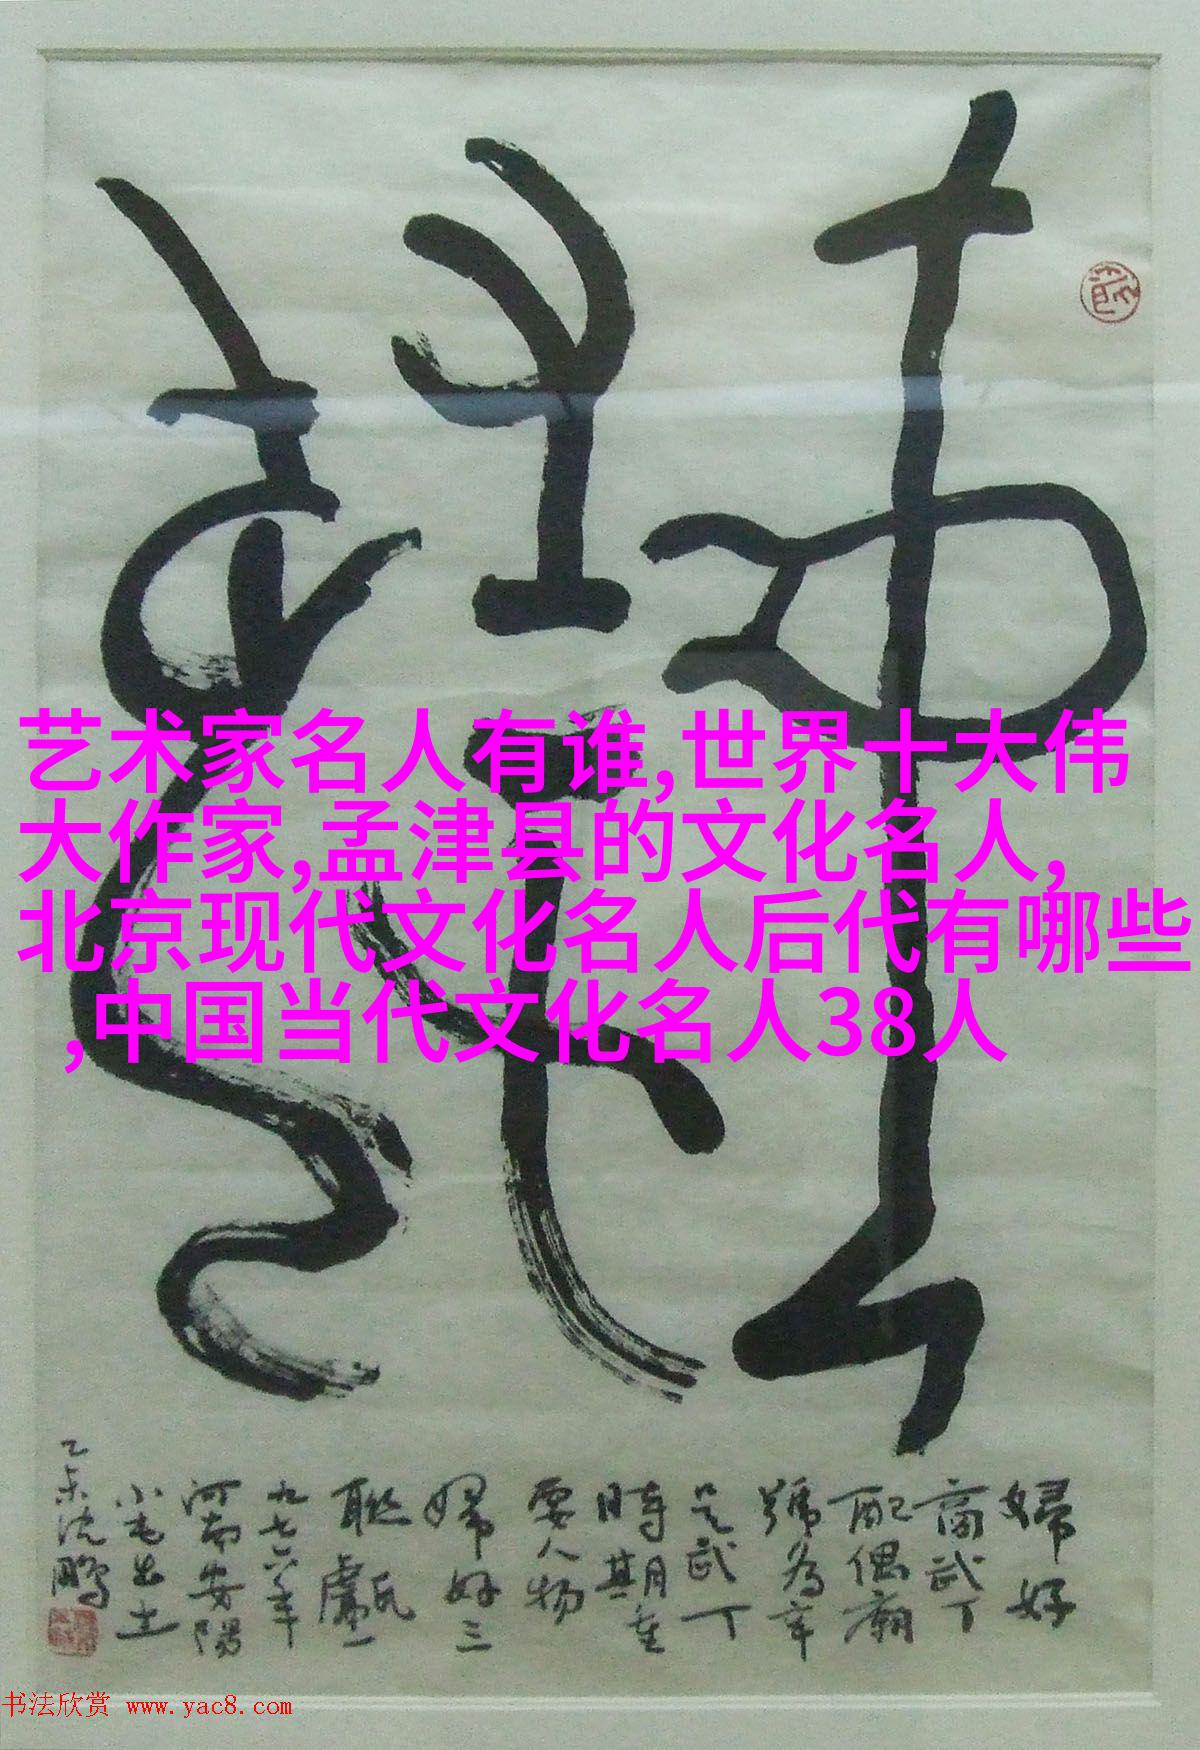 艺术家名人有谁,世界十大伟
大作家,孟津县的文化名人,
北京现代文化名人后代有哪些
,中国当代文化名人38人
婦好
商武丁
配偶廟
號为辛
是武丁
時期重
要人物
婦好三
聯甗一
九七六年
河南安陽
小屯出土
乙未沈鹏
书法欣赏 www.yac8.com